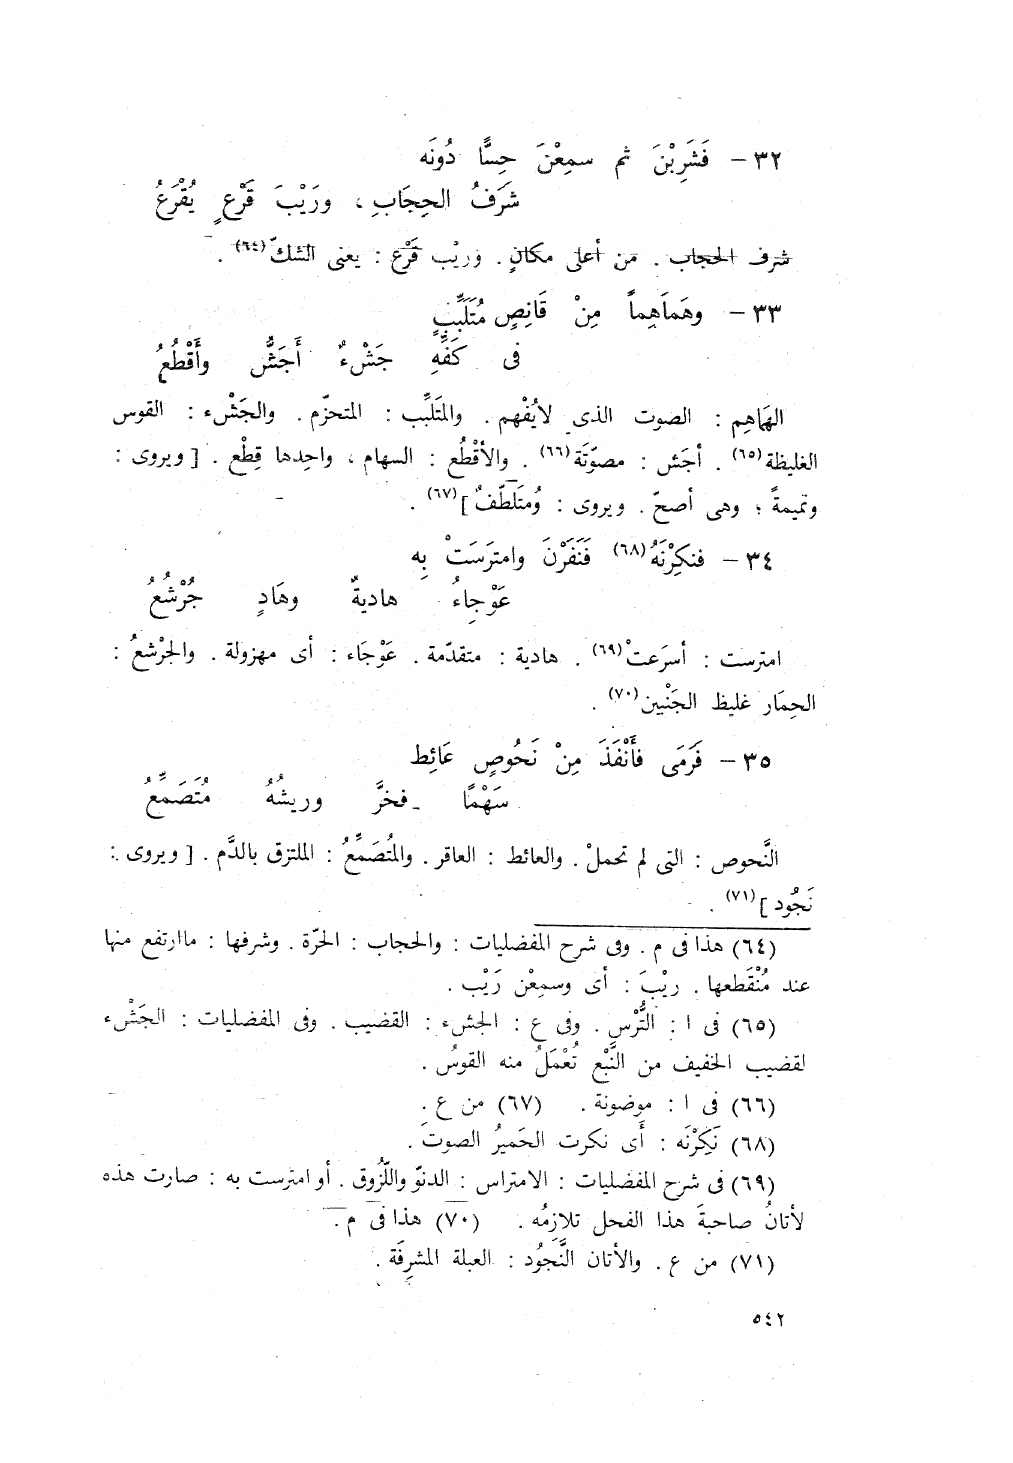 ٣٢ – فَشَرِبْنَ ثم سمِعْنَ حِسًّا دُونَه
شَرَفُ الحِجَابِ ، ورَيْبَ قَرْعٍ يُقْرَعُ
شرف الحجاب . من أعلى مكانٍ . ورَيْب قَرْع : يعنى الشكّ(٦٤) .
٣٣ – وهَمَاهِمًا مِنْ قَانِصٍ مُتَلَبِّبٍ
فى كَفِّهِ جَشْءٌ أَجَشُّ وأَقْطُعُ
الهَمَاهِم : الصوت الذى لايُفْهم . والمتَلبِّب : المتحزّم . والجَشْء : القوس
الغليظة(٦٥) . أجَش : مصوّتَة(٦٦) . والأقْطُع : السهام ، واحِدها قِطْع . [ ويروى :
ونميمةً ؛ وهى أصحّ . ويروى : ومُتَلَطِّفٌ ](٦٧) .
٣٤ – فنكِرْنَهُ(٦٨) فَنَفَرْنَ وامترَسَتْ بِه
عَوْجاءُ هاديةٌ وهَادٍ جُرْشُعُ
امترست : أسرَعتْ(٦٩) . هادية : متقدّمة . عَوْجَاء : أى مهزولة . والجُرْشعُ :
الحِمَار غليظ الجَنْبين(٧٠) .
٣٥ – فَرَمَى فأَنْفَذَ مِنْ نَحُوصٍ عَائِط
سَهْمًا . فخرَّ وريشُهُ مُتَصَمِّعُ
النَّحوص : التى لم تحملْ . والعائط : العاقر . والمتُصَمِّعُ : الملتزق بالدَّم . [ ويروى :
نَجُود ](٧١) .
(٦٤) هذا فى م . وفى شرح المفضليات : والحجاب : الحرّة . وشرفها : ماارتفع منها
عند مُنْقَطعها . ريْبَ : أى وسمِعْن رَيْب .
(٦٥) فى ا : التُّرْس . وفى ع : الجشء : القضيب . وفى المفضليات : الجَشْء
لقضيب الخفيف من النَّبْع تُعْمَلُ منه القوسُ .
(٦٦) فى ا : موضونة . (٦٧) من ع .
(٦٨) نَكِرْنَه : أَى نكرت الحَميرُ الصوتَ .
(٦٩) فى شرح المفضليات : الامتراس : الدنوّ واللّزُوق . أو امترست به : صارت هذه
لأتانُ صاحبةَ هذا الفحل تلازِمُه . (٧٠) هذا فى م .
(٧١) من ع . والأتان النَّجُود : العبلة المشرِفَة .
٥٤٢